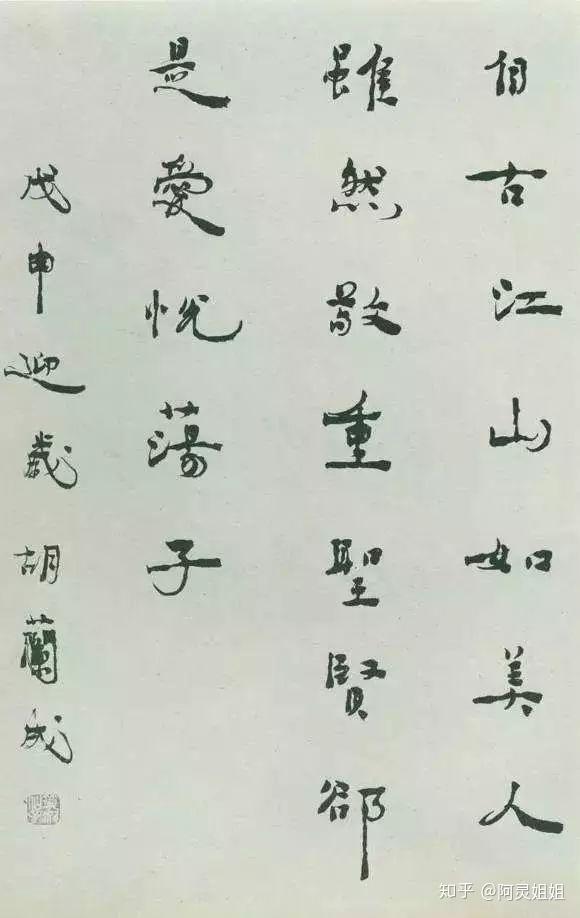 自古江山如美人
雖然敬重聖賢郤
是愛悅蕩子
戊申迎歲 胡蘭成
知乎 @阿灵姐姐